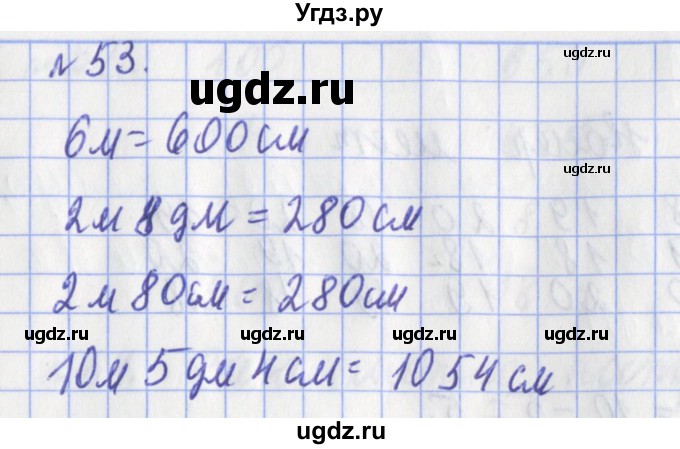 Угдз.ру
№53.
ugdz.ru
ugdz.ru
6м = 600см
ugdz.ru
2м 8дм = 280см
2м 80см = 280см
ugdz.ru
ugdz.ru
ugdz.ru
10м 5дм 4см = 1054см
ugdz.ru